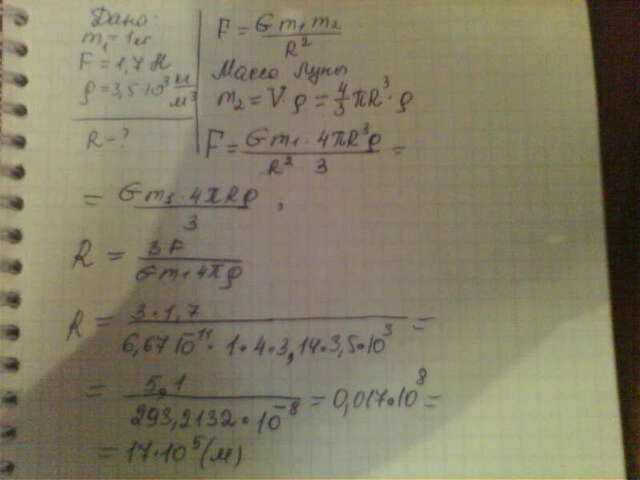 Дано:
m₁ = 1кг
F = 1,7 Н
ρ = 3,5·10³ м/м³
R - ?
F = G m₁ m₂ / R²
Масса Луны
m₂ = V·ρ = 4/3 πR³·ρ
F = G m₁ · 4πR³ρ / R² 3 =
= G m₁ · 4πRρ / 3 ,
R = 3F / G m₁ 4πρ
R = 3·1,7 / 6,67 10⁻¹¹ · 1·4·3,14·3,5·10³ =
= 5,1 / 293,2132·10⁻⁸ = 0,017·10⁸ =
= 17·10⁵ (м)